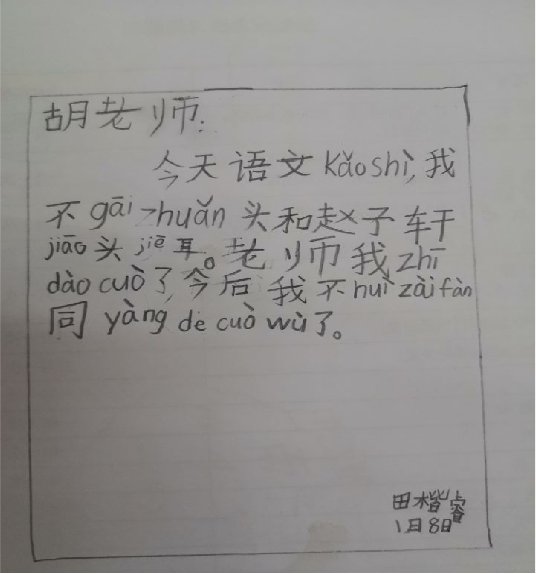 胡老师:
今天语文kǎoshì,我
不gāi zhuǎn头和赵子轩
jiāo头jiē耳。老师我zhī
dào cuò了,今后我不huì zài fàn
同yàng de cuò wù了。
田楷睿
1月8日